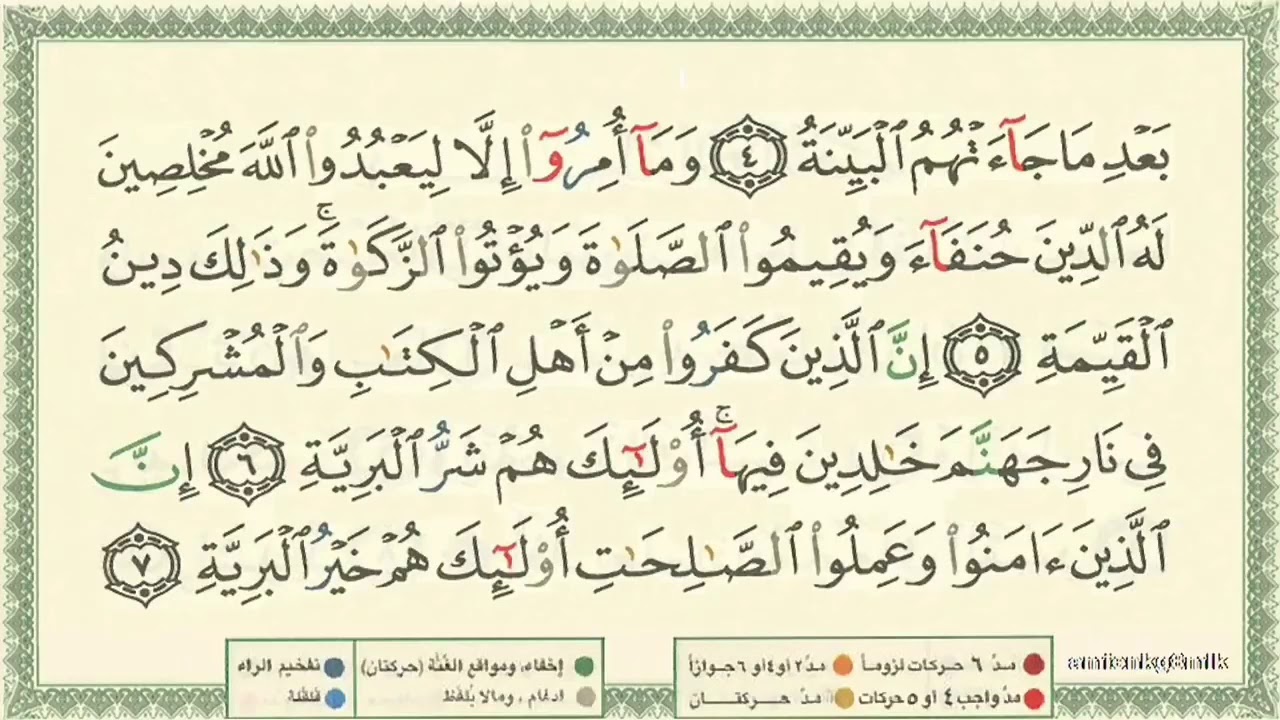 بَعْدِ مَا جَآءَتْهُمُ ٱلْبَيِّنَةُ ٤ وَمَآ أُمِرُوٓا۟ إِلَّا لِيَعْبُدُوا۟ ٱللَّهَ مُخْلِصِينَ
لَهُ ٱلدِّينَ حُنَفَآءَ وَيُقِيمُوا۟ ٱلصَّلَوٰةَ وَيُؤْتُوا۟ ٱلزَّكَوٰةَ ۚ وَذَٰلِكَ دِينُ
ٱلْقَيِّمَةِ ٥ إِنَّ ٱلَّذِينَ كَفَرُوا۟ مِنْ أَهْلِ ٱلْكِتَـٰبِ وَٱلْمُشْرِكِينَ
فِى نَارِ جَهَنَّمَ خَـٰلِدِينَ فِيهَآ ۚ أُو۟لَـٰٓئِكَ هُمْ شَرُّ ٱلْبَرِيَّةِ ٦ إِنَّ
ٱلَّذِينَ ءَامَنُوا۟ وَعَمِلُوا۟ ٱلصَّـٰلِحَـٰتِ أُو۟لَـٰٓئِكَ هُمْ خَيْرُ ٱلْبَرِيَّةِ ٧
مدّ ٦ حركات لزوماً مدّ ٢ أو ٤ أو ٦ جوازاً
مدّ واجب ٤ أو ٥ حركات مدّ حركتان
إخفاء، ومواقع الغُنَّة (حركتان) تفخيم الراء
ادغام، ومالا يُلفَظ قلقلة